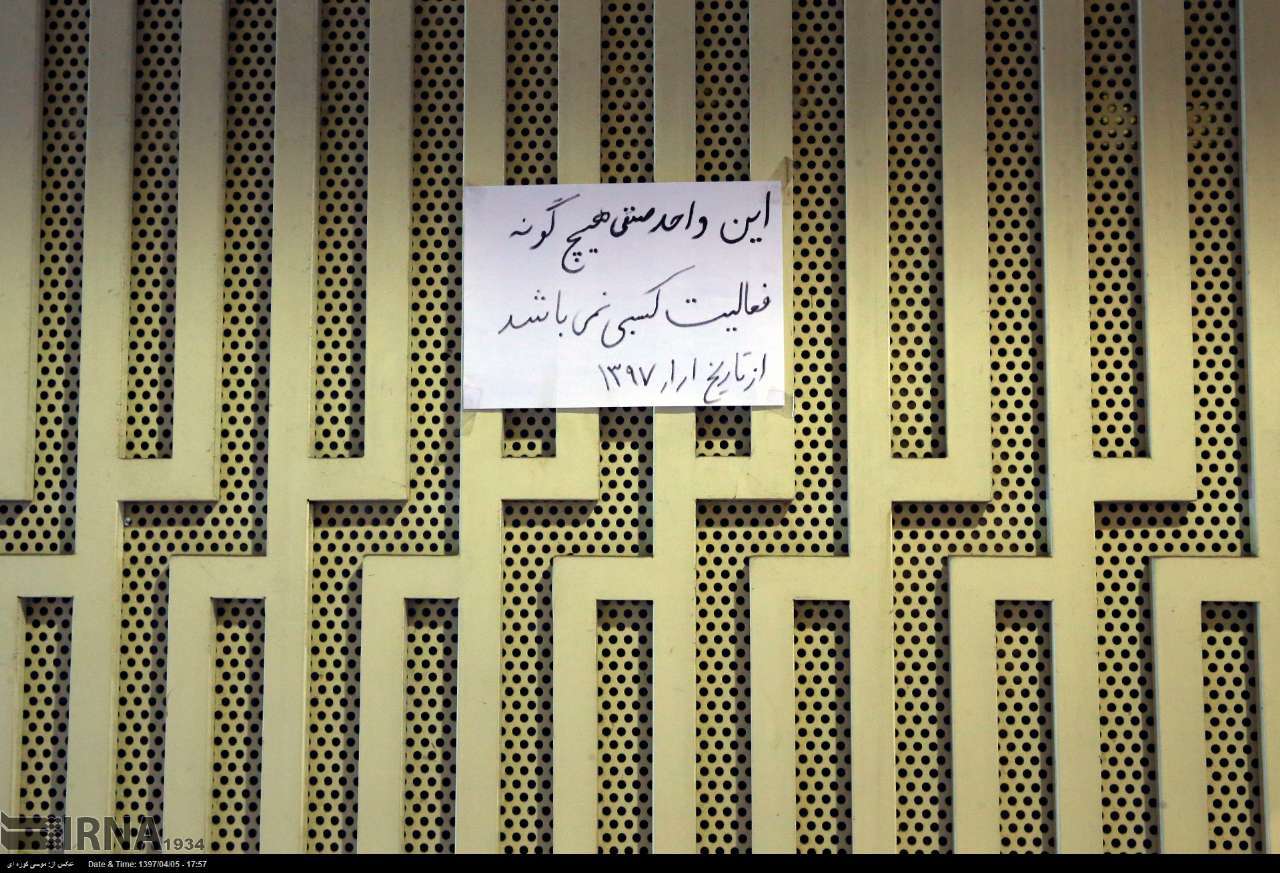 این واحد صنفی هیچ گونه
فعالیت کسبی نمی باشد
از تاریخ ۱ر۱ر ۱۳۹۷
IRNA 1934
عکس از: موسی کوره ای Date & Time: 1397/04/05 - 17:57